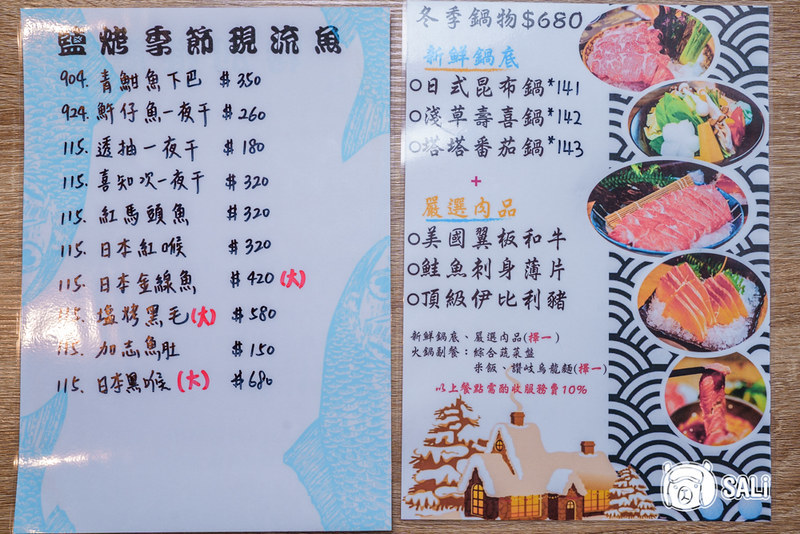 鹽烤季節現流魚
904. 青魽魚下巴 $350
924. 魸仔魚一夜干 $260
115. 透抽一夜干 $180
115. 喜知次一夜干 $320
115. 紅馬頭魚 $320
115. 日本紅喉 $320
115. 日本金線魚 $420 (大)
115. 塩烤黑毛(大) $580
115. 加志魚肚 $150
115. 日本黑喉(大) $680
冬季鍋物$680
新鮮鍋底
○日式昆布鍋*141
○淺草壽喜鍋*142
○塔塔番茄鍋*143
+
嚴選肉品
○美國翼板和牛
○鮭魚刺身薄片
○頂級伊比利豬
新鮮鍋底、嚴選肉品(擇一)
火鍋副餐：綜合蔬菜盤
米飯、讚岐烏龍麵(擇一)
以上餐點需酌收服務費10%
SALi